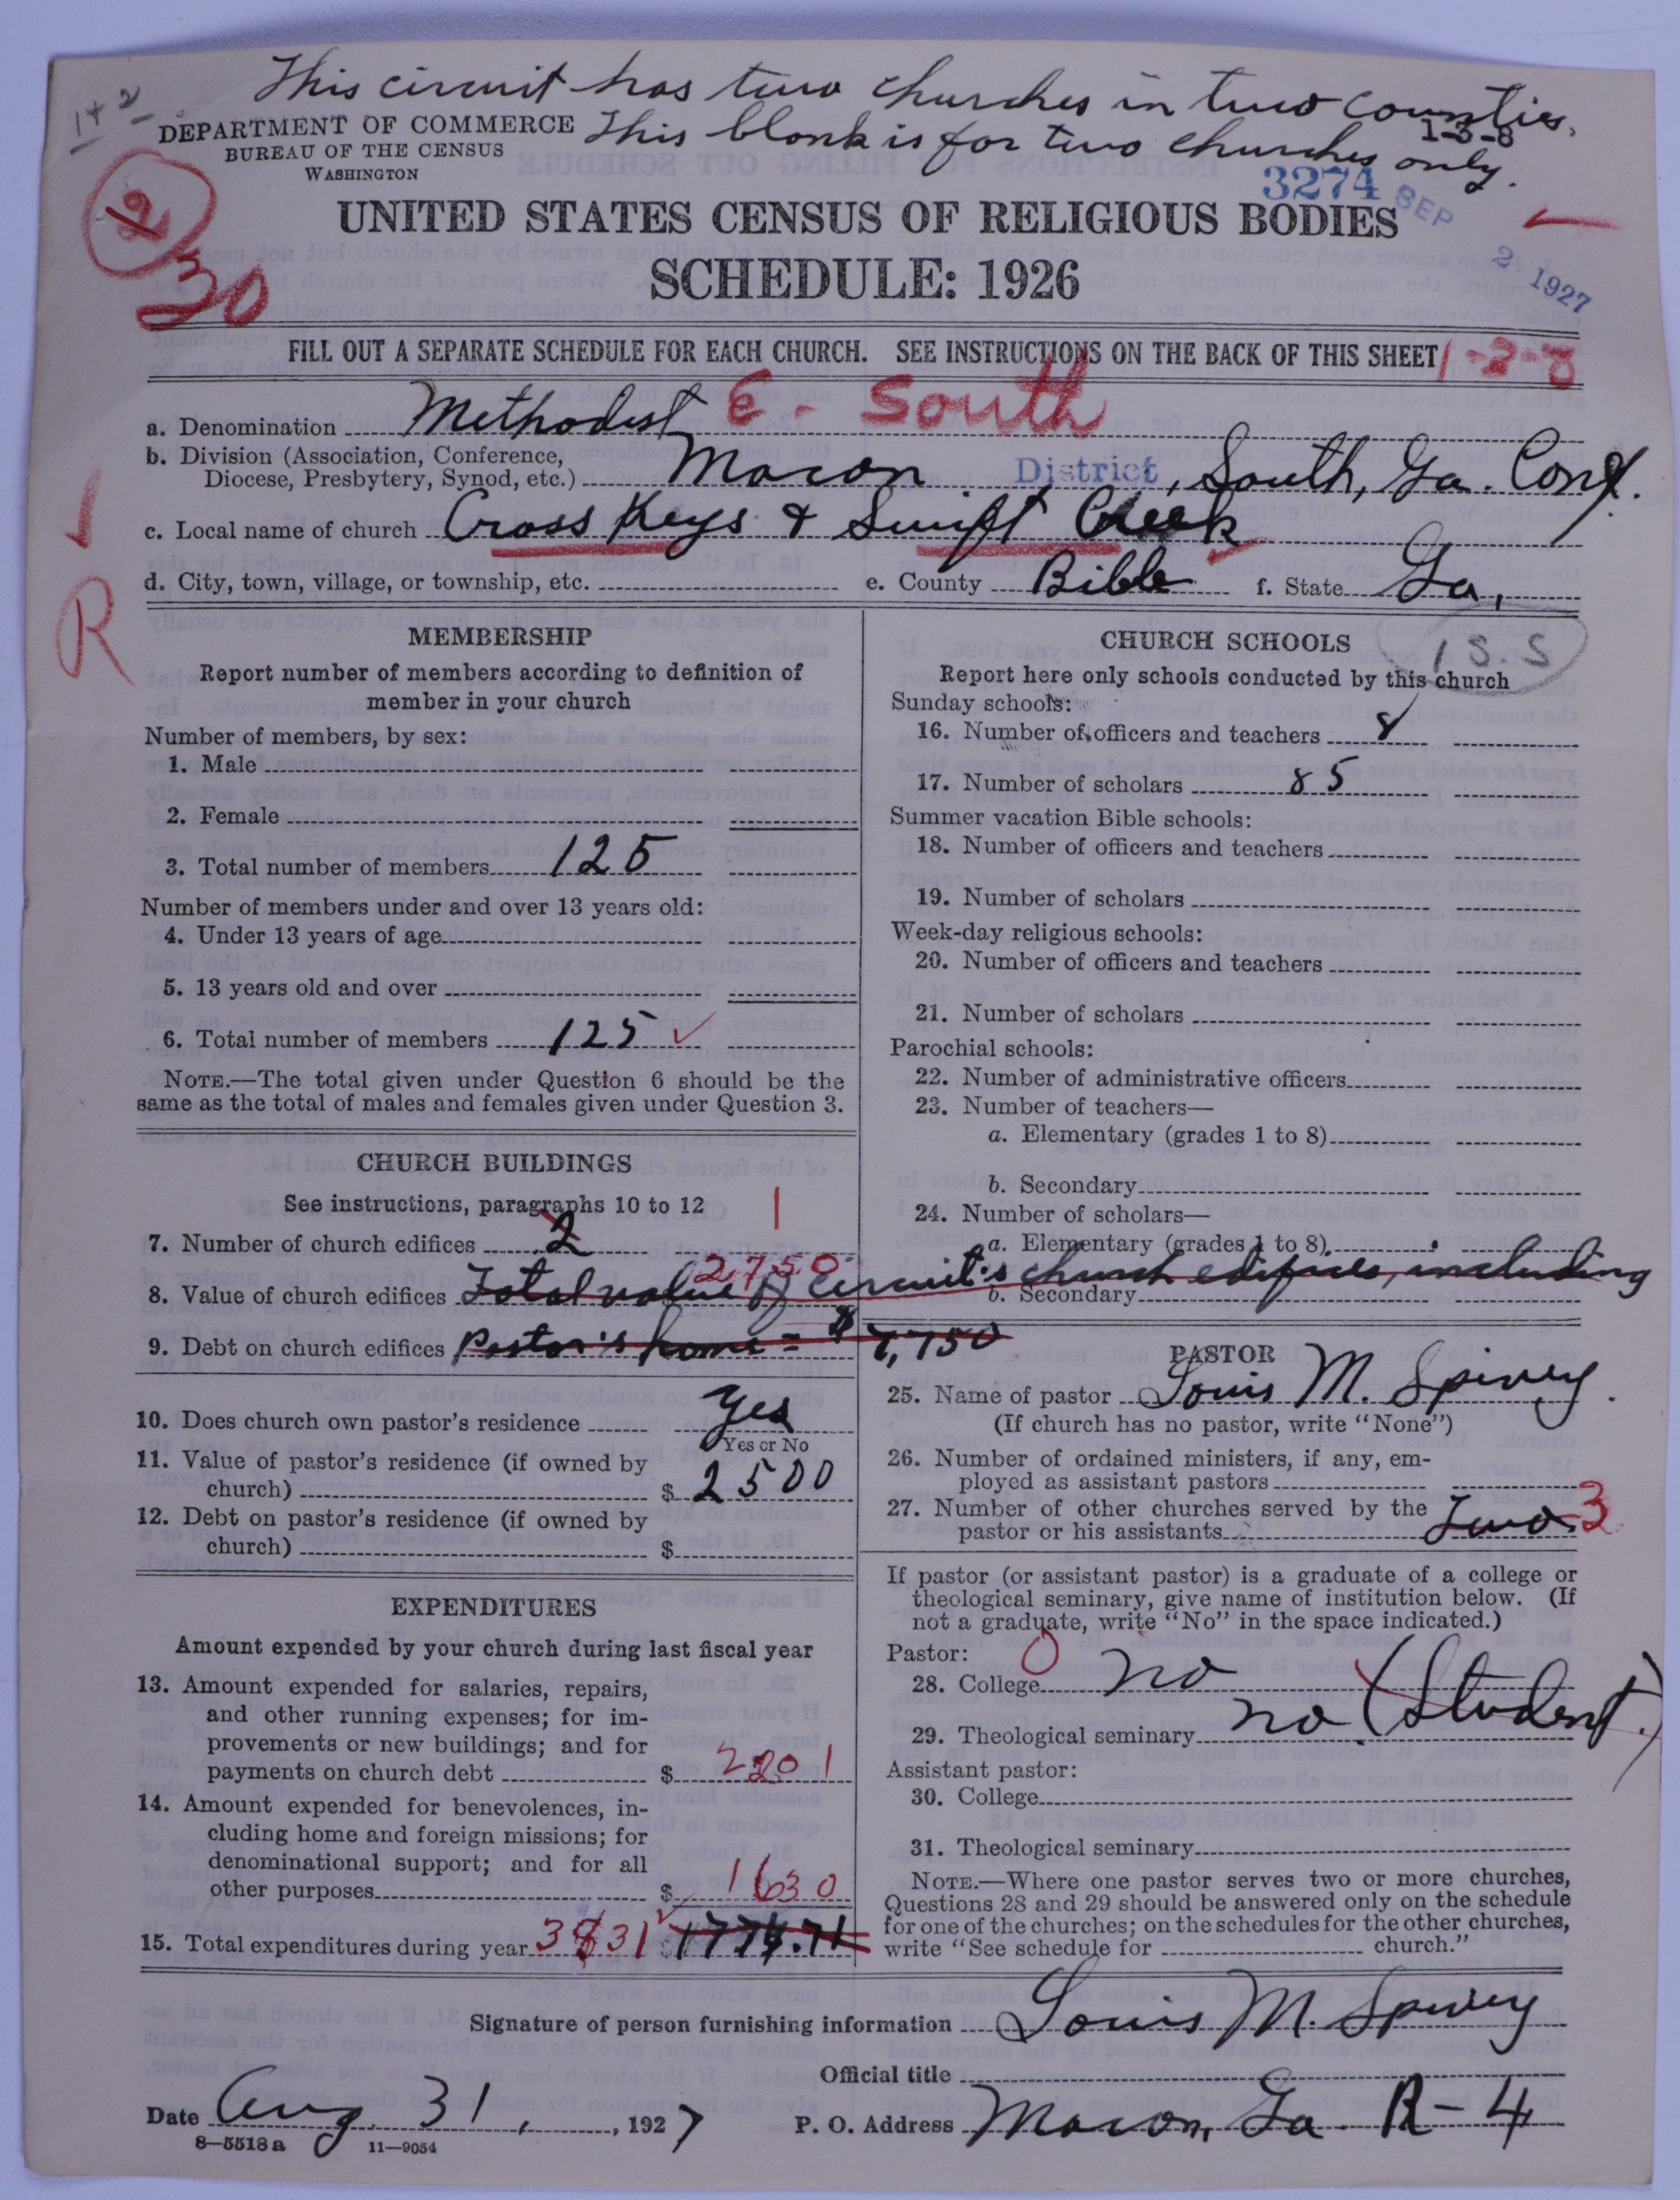 This circuit has two churches in two counties.
1+2
DEPARTMENT OF COMMERCE This blank is for two churches only.
1-3-8
BUREAU OF THE CENSUS
WASHINGTON
3274 SEP 2 1927
2
30
UNITED STATES CENSUS OF RELIGIOUS BODIES
SCHEDULE: 1926
FILL OUT A SEPARATE SCHEDULE FOR EACH CHURCH. SEE INSTRUCTIONS ON THE BACK OF THIS SHEET
1-3-8
a. Denomination Methodist E. South
b. Division (Association, Conference,
Diocese, Presbytery, Synod, etc.) Macon District, South, Ga. Conf.
c. Local name of church Cross Keys & Swift Creek
d. City, town, village, or township, etc. e. County Bibb f. State Ga.
R
MEMBERSHIP
Report number of members according to definition of
member in your church
Number of members, by sex:
1. Male
2. Female
3. Total number of members 125
Number of members under and over 13 years old:
4. Under 13 years of age
5. 13 years old and over
6. Total number of members 125
NOTE.—The total given under Question 6 should be the
same as the total of males and females given under Question 3.
CHURCH BUILDINGS
See instructions, paragraphs 10 to 12
7. Number of church edifices 2 1
8. Value of church edifices Total value of circuit's church edifices, including 2750
9. Debt on church edifices Pastor's home = $7,750
10. Does church own pastor's residence Yes
Yes or No
11. Value of pastor's residence (if owned by
church) $ 2500
12. Debt on pastor's residence (if owned by
church) $
EXPENDITURES
Amount expended by your church during last fiscal year
13. Amount expended for salaries, repairs,
and other running expenses; for im-
provements or new buildings; and for
payments on church debt $ 2201
14. Amount expended for benevolences, in-
cluding home and foreign missions; for
denominational support; and for all
other purposes $ 1630
15. Total expenditures during year 3831 $ 1774.71
CHURCH SCHOOLS
1 S.S
Report here only schools conducted by this church
Sunday schools:
16. Number of officers and teachers 8
17. Number of scholars 85
Summer vacation Bible schools:
18. Number of officers and teachers
19. Number of scholars
Week-day religious schools:
20. Number of officers and teachers
21. Number of scholars
Parochial schools:
22. Number of administrative officers
23. Number of teachers—
a. Elementary (grades 1 to 8)
b. Secondary
24. Number of scholars—
a. Elementary (grades 1 to 8)
b. Secondary
PASTOR
25. Name of pastor Louis M. Spivey
(If church has no pastor, write "None")
26. Number of ordained ministers, if any, em-
ployed as assistant pastors
27. Number of other churches served by the
pastor or his assistants Two 3
If pastor (or assistant pastor) is a graduate of a college or
theological seminary, give name of institution below. (If
not a graduate, write "No" in the space indicated.)
Pastor: 0
28. College no
29. Theological seminary no (Student.)
Assistant pastor:
30. College
31. Theological seminary
NOTE.—Where one pastor serves two or more churches,
Questions 28 and 29 should be answered only on the schedule
for one of the churches; on the schedules for the other churches,
write "See schedule for church."
Signature of person furnishing information Louis M. Spivey
Official title
Date Aug. 31, 1927 P. O. Address Macon, Ga. R-4
8—5518a 11—9054